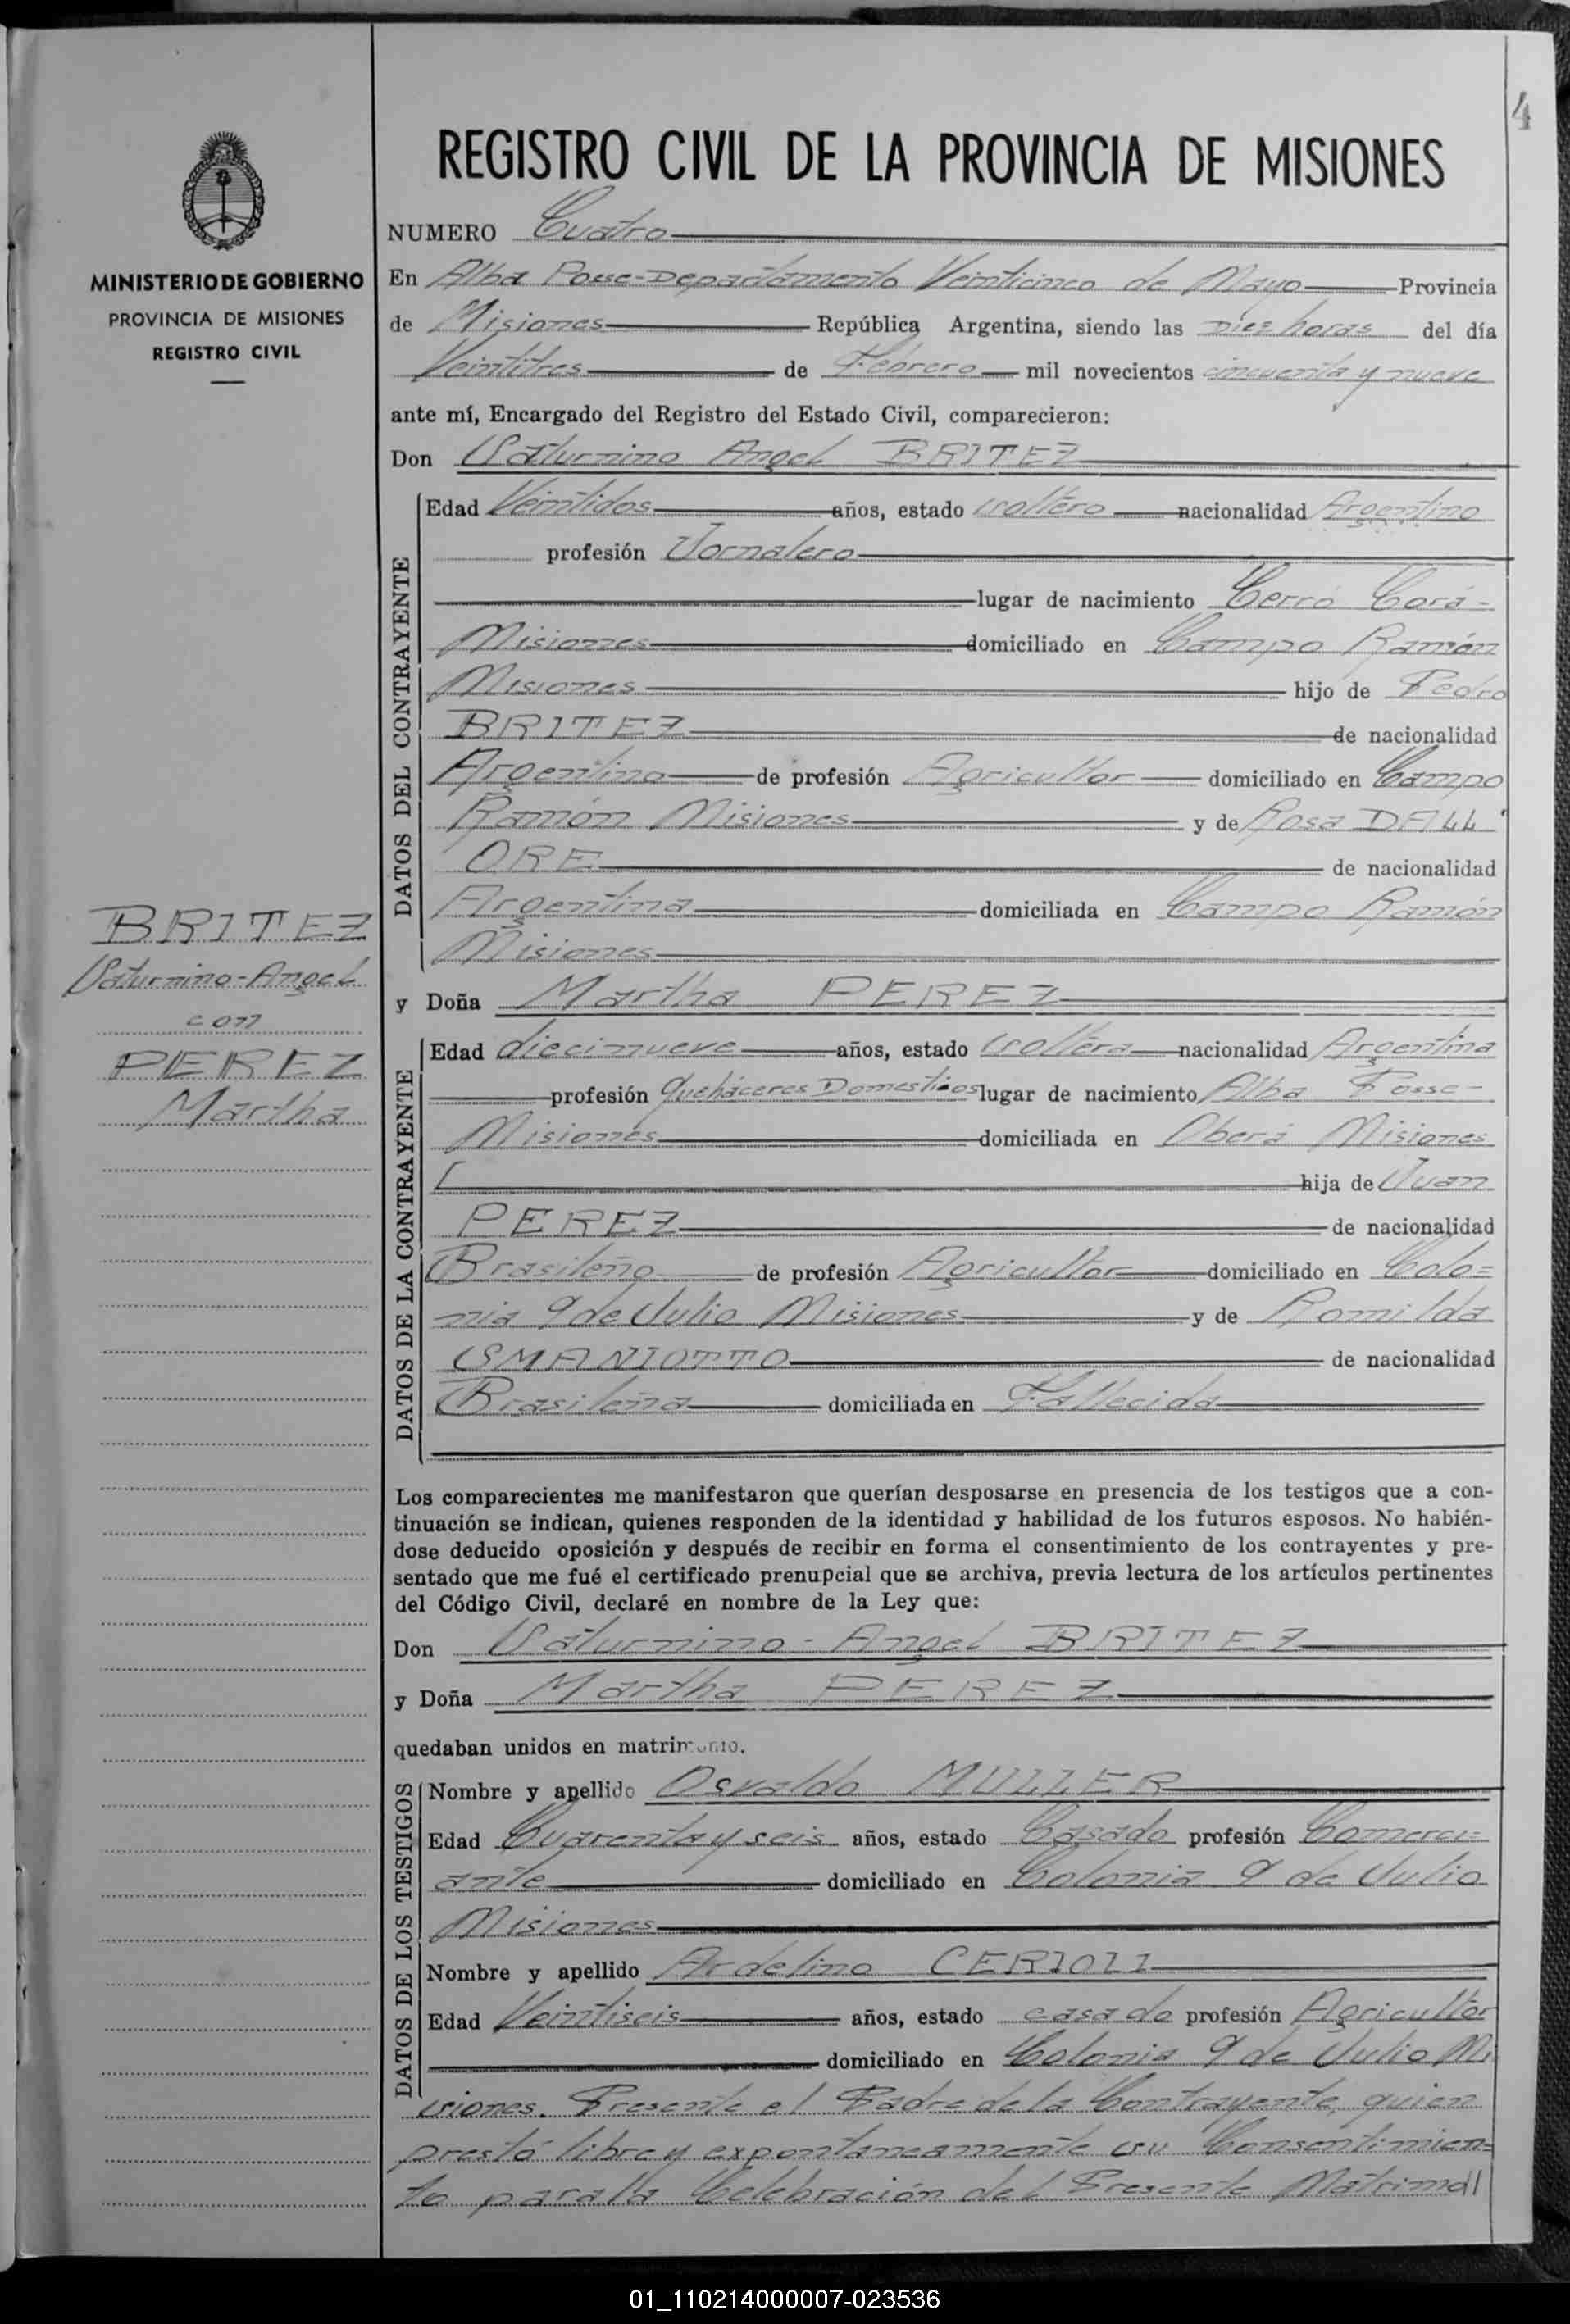 4
REGISTRO CIVIL DE LA PROVINCIA DE MISIONES
MINISTERIO DE GOBIERNO
PROVINCIA DE MISIONES
REGISTRO CIVIL
BRITEZ
Saturnino-Angel
con
PEREZ
Martha
NUMERO Cuatro
En Alba Posse-Departamento Veinticinco de Mayo Provincia
de Misiones República Argentina, siendo las Diez horas del día
Veintitres de Febrero mil novecientos cincuenta y nueve
ante mí, Encargado del Registro del Estado Civil, comparecieron:
Don Saturnino Angel BRITEZ
DATOS DEL CONTRAYENTE
Edad Veintidos años, estado soltero nacionalidad Argentino
profesión Jornalero
lugar de nacimiento Cerró Corá-
Misiones domiciliado en Campo Ramón
Misiones hijo de Pedro
BRITEZ de nacionalidad
Argentino de profesión Agricultor domiciliado en Campo
Ramón Misiones y de Rosa DALL'
ORE de nacionalidad
Argentina domiciliada en Campo Ramón
Misiones
y Doña Martha PEREZ
DATOS DE LA CONTRAYENTE
Edad diecinueve años, estado soltera nacionalidad Argentina
profesión Queháceres Domesticos lugar de nacimiento Alba Posse-
Misiones domiciliada en Oberá Misiones
hija de Juan
PEREZ de nacionalidad
Brasileño de profesión Agricultor domiciliado en Colo=
nia 9 de Julio Misiones y de Romilda
SMANIOTTO de nacionalidad
Brasileña domiciliada en Fallecida
Los comparecientes me manifestaron que querían desposarse en presencia de los testigos que a con-
tinuación se indican, quienes responden de la identidad y habilidad de los futuros esposos. No habién-
dose deducido oposición y después de recibir en forma el consentimiento de los contrayentes y pre-
sentado que me fué el certificado prenupcial que se archiva, previa lectura de los artículos pertinentes
del Código Civil, declaré en nombre de la Ley que:
Don Saturnino-Angel BRITEZ
y Doña Martha PEREZ
quedaban unidos en matrimonio.
DATOS DE LOS TESTIGOS
Nombre y apellido Osvaldo MULLER
Edad Cuarenta y seis años, estado Casado profesión Comerci=
ante domiciliado en Colonia 9 de Julio
Misiones
Nombre y apellido Ardelino CERIOLI
Edad Veintiseis años, estado casado profesión Agricultor
domiciliado en Colonia 9 de Julio Mi
siones. Presente el Padre de la Contrayente, quien
prestó libre y expontaneamente su Consentimien=
to para la Celebración del Presente Matrimo//
01_110214000007-023536